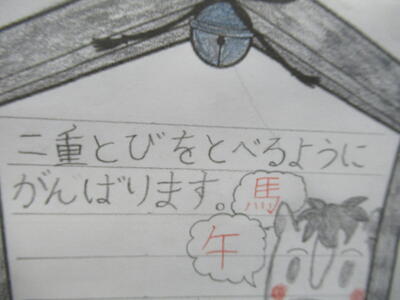 二重とびをとべるように
がんばります。
馬
午